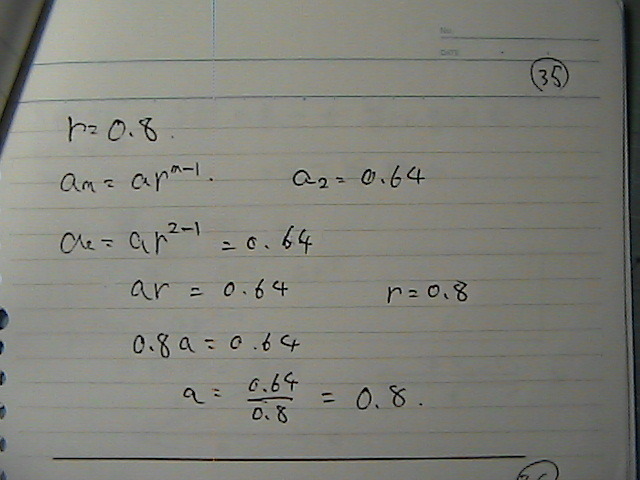 No.
DATE
35
r=0.8.
aₙ = arⁿ⁻¹. a₂ = 0.64
a₂ = ar²⁻¹ = 0.64
ar = 0.64 r=0.8
0.8a = 0.64
a = 0.64/0.8 = 0.8.